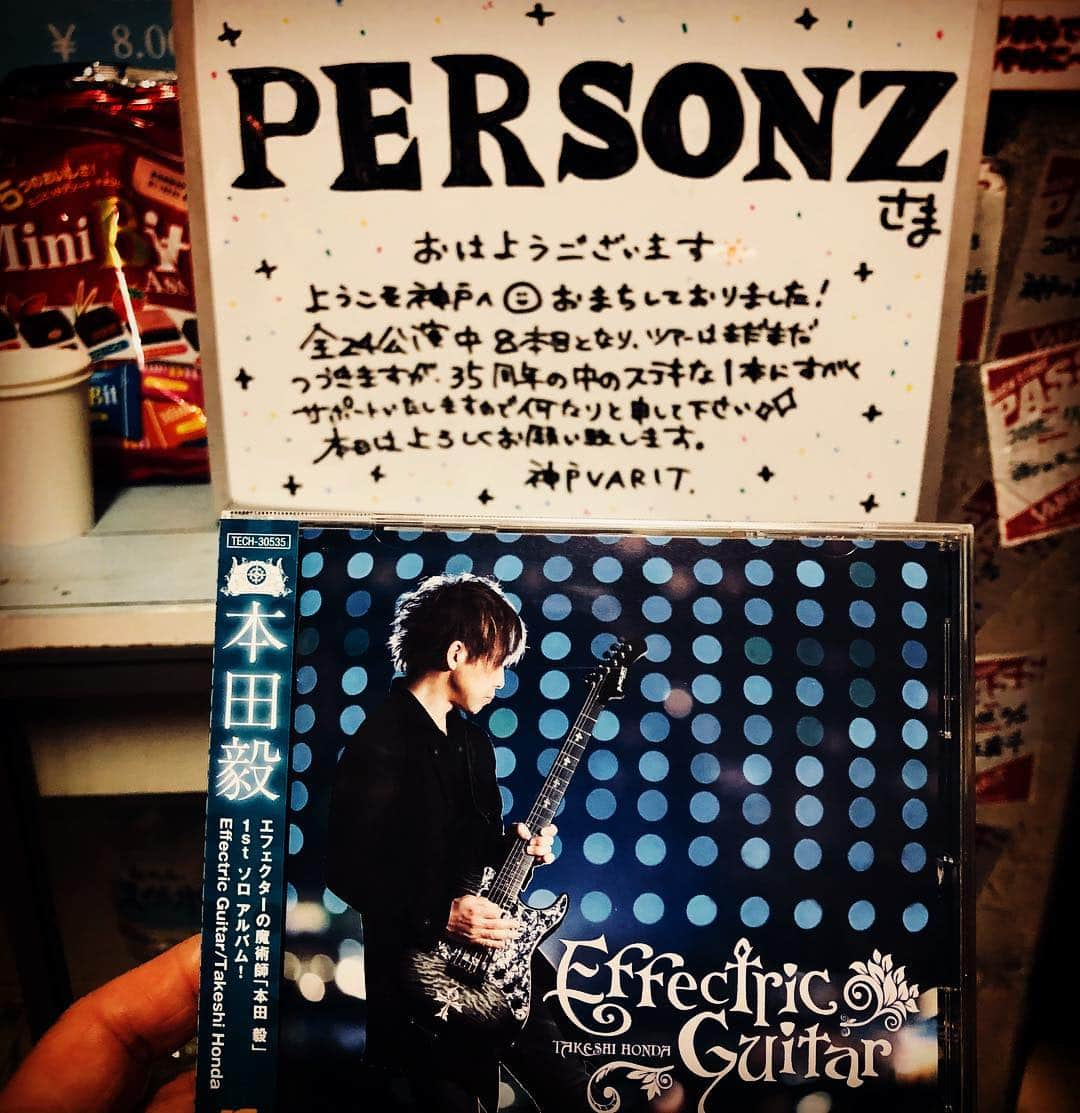 ¥ 8.00
PERSONZ
さま
おはようございます
ようこそ神戸へ おまちしておりました!
全24公演中 8本目となり、ツアーはまだまだ
つづきますが、35周年の中のステキな1本にすべく
サポートいたしますので何なりと申して下さい
本日はよろしくお願い致します。
神戸VARIT.
5つのおいしさ!
Mini Bit
Ass
Bit
PASS
TECH-30535
本田毅
エフェクターの魔術師「本田 毅」
1st ソロ アルバム!
Effectric Guitar/Takeshi Honda
Effectric
TAKESHI HONDA
Guitar